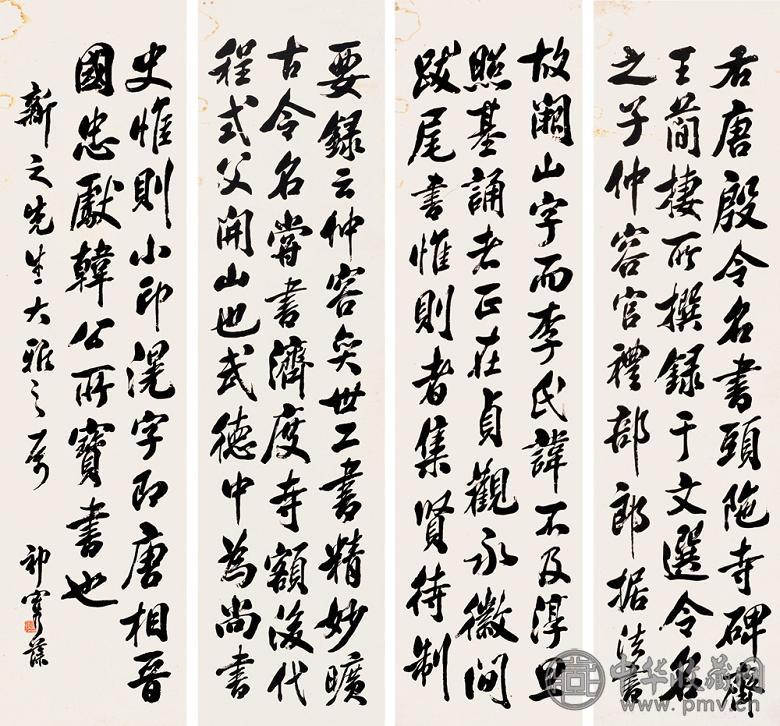 右唐殷令名書頭陁寺碑齊
王簡棲所撰録于文選令名
之子仲容官禮部郎据法書
故闕山字而李氏諱不及淳旦
照基誦者正在貞觀永徽間
跋尾書惟則者集賢待制
要録云仲容奕世工書精妙曠
古令名嘗書濟度寺額後代
程式父開山也武德中為尚書
史惟則小印滉字即唐相晉
國忠獻韓公所寶書也
新之先生大雅之属
祁寯藻
中华收藏网
www.pmv.cn